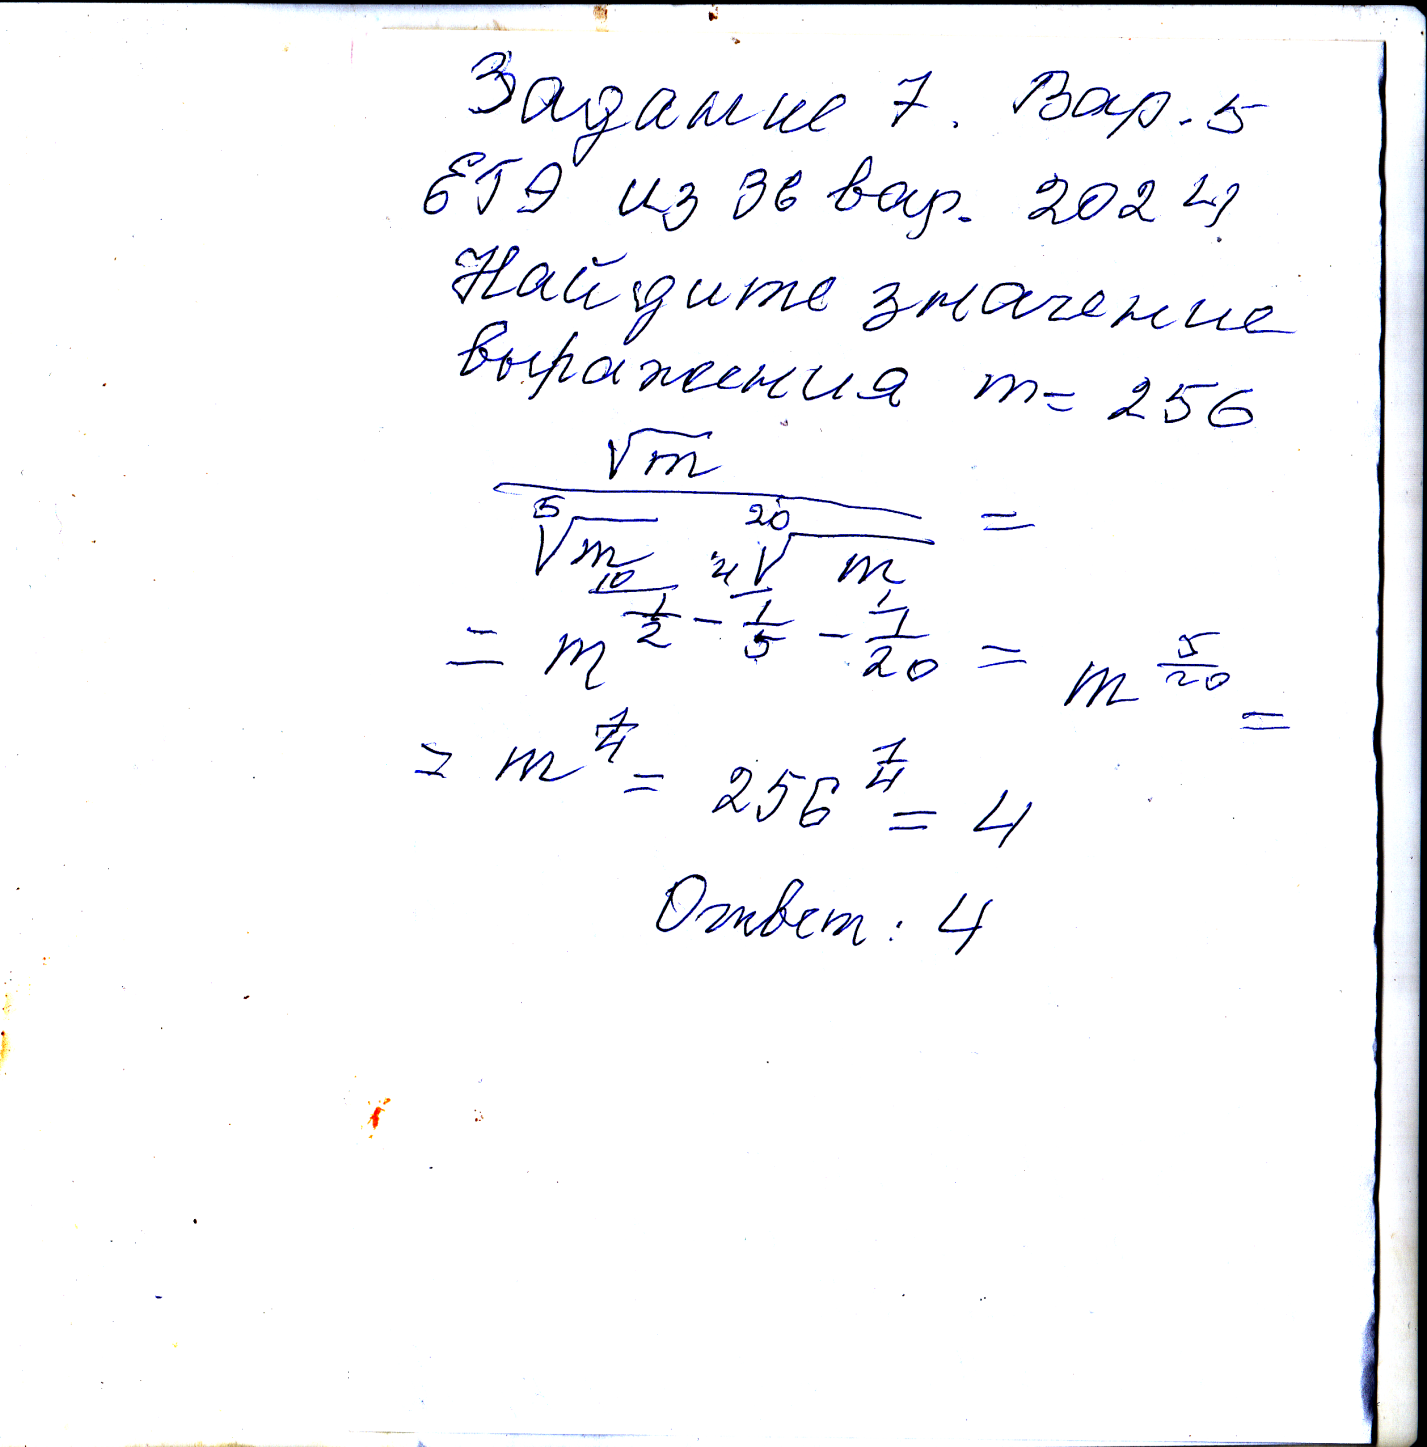 Задание 7. Вар. 5
ЕГЭ из 36 вар. 2024
Найдите значение
выражения m = 256
√m / (⁵√m ²⁰√m) =
= m^(1/2 - 1/5 - 1/20) = m^(5/20) =
= m^(1/4) = 256^(1/4) = 4
Ответ: 4